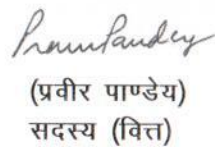 Pravir Pandey
(प्रवीर पाण्डेय)
सदस्य (वित्त)